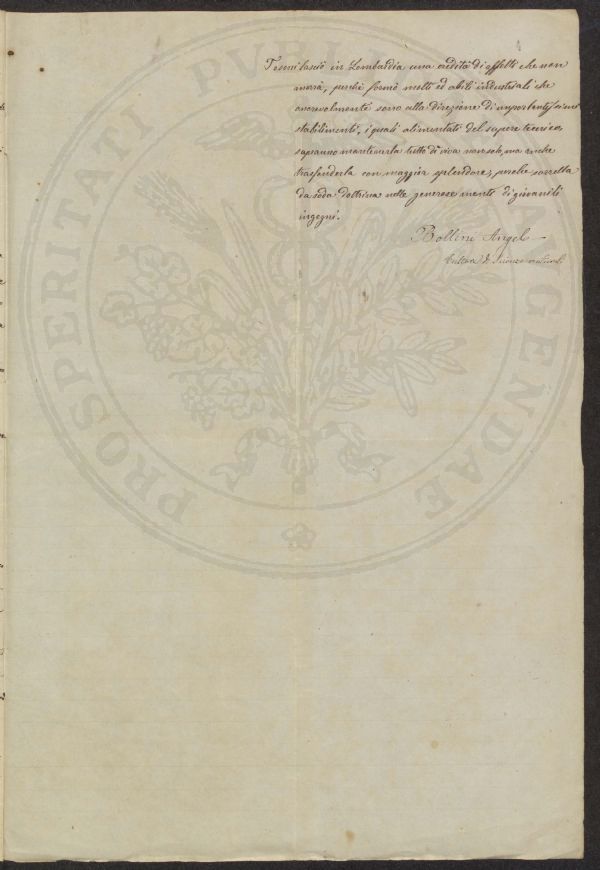 Tessini lasciò in Lombardia una eredità di affetti che non
morrà, perchè formò molti ed abili industriali che
onorevolmente sono alla direzione di importantissimi
stabilimenti, i quali alimentati del sapere teorico,
sapranno mantenerla tutto dì viva non solo, ma anche
trasfonderla con maggior splendore, perchè sorretta
da soda dottrina nelle generose menti di giovanili
ingegni.
Bollini Angelo
Dottore di Scienze naturali
PROSPERITATI PUBLICAE AUGENDAE